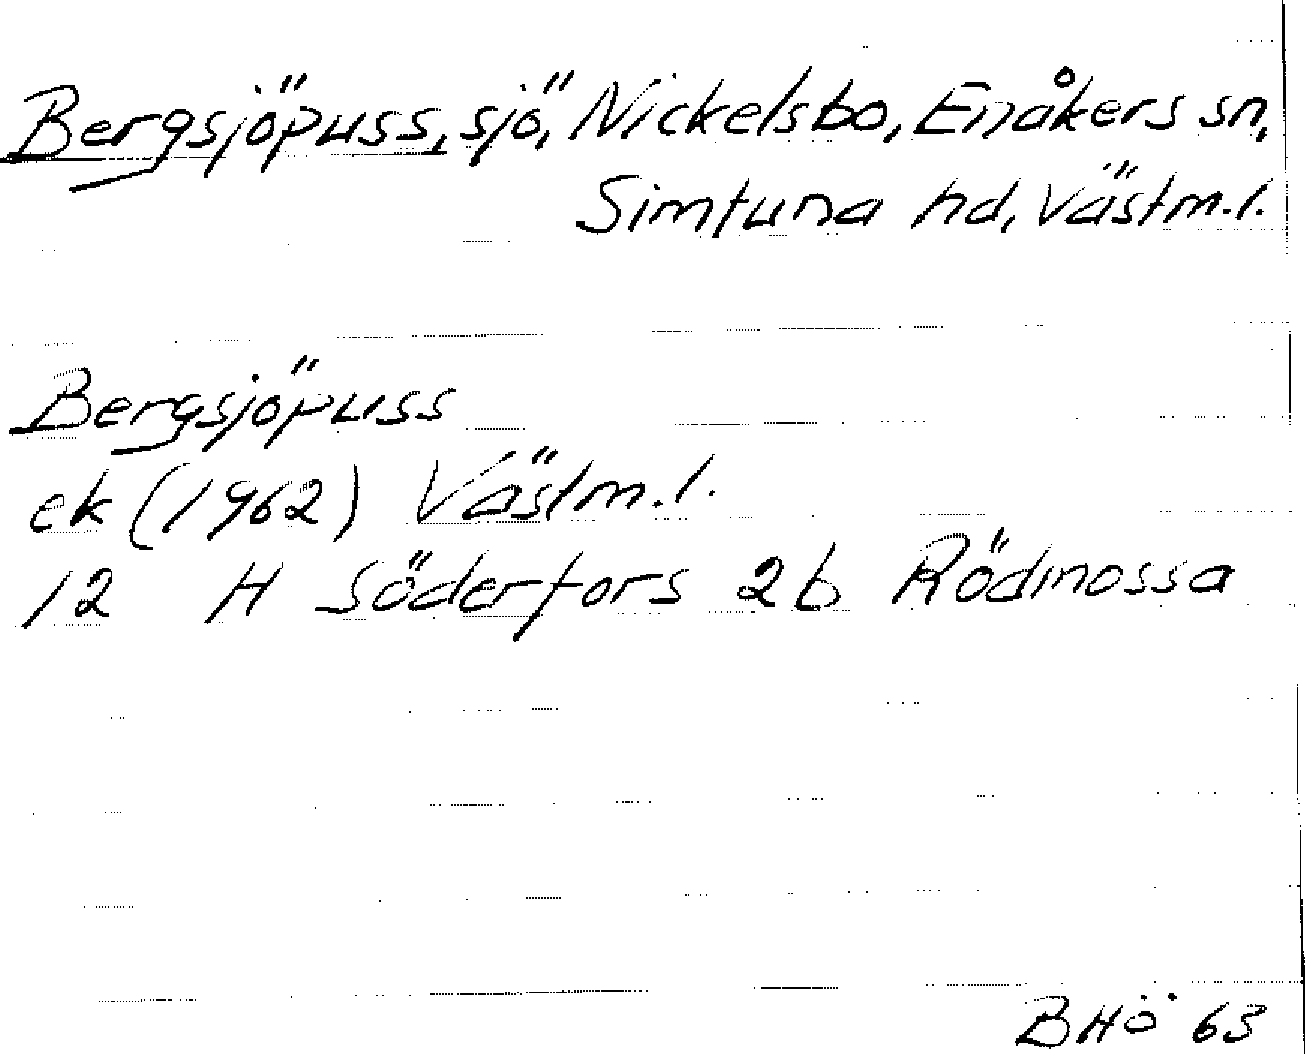 Bergsjöpuss, sjö, Nickelsbo, Enåkers sn,
Simtuna hd, Västm.l.
Bergsjöpuss
ek (1962) Västm.l.
12 H Söderfors 2b Rödmossa
BHÖ 63